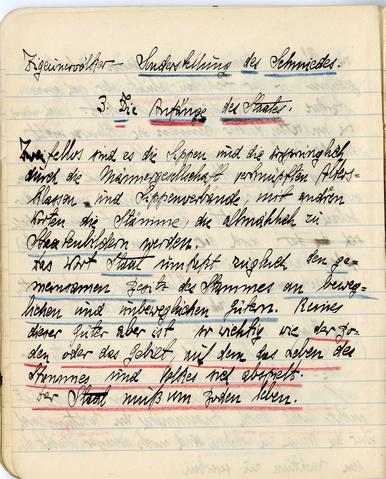 Zigeunervölker — Sonderstellung des Schmiedes.
3. Die Anfänge des Staates.
Zweifellos sind es die Sippen und die ursprünglich
durch die Männergesellschaft verknüpften Alters-
klassen und Sippenverbände, mit andren
Worten die Stämme, die allmählich zu
Staatenbildern werden.
Das Wort Staat umfaßt zugleich den ge-
meinsamen Besitz des Stammes an beweg-
lichen und unbeweglichen Gütern. Keines
dieser Güter aber ist so wichtig wie der Bo-
den oder das Gebiet, auf dem das Leben des
Stammes und sich abspielt.
Der Staat muß vom Boden leben.